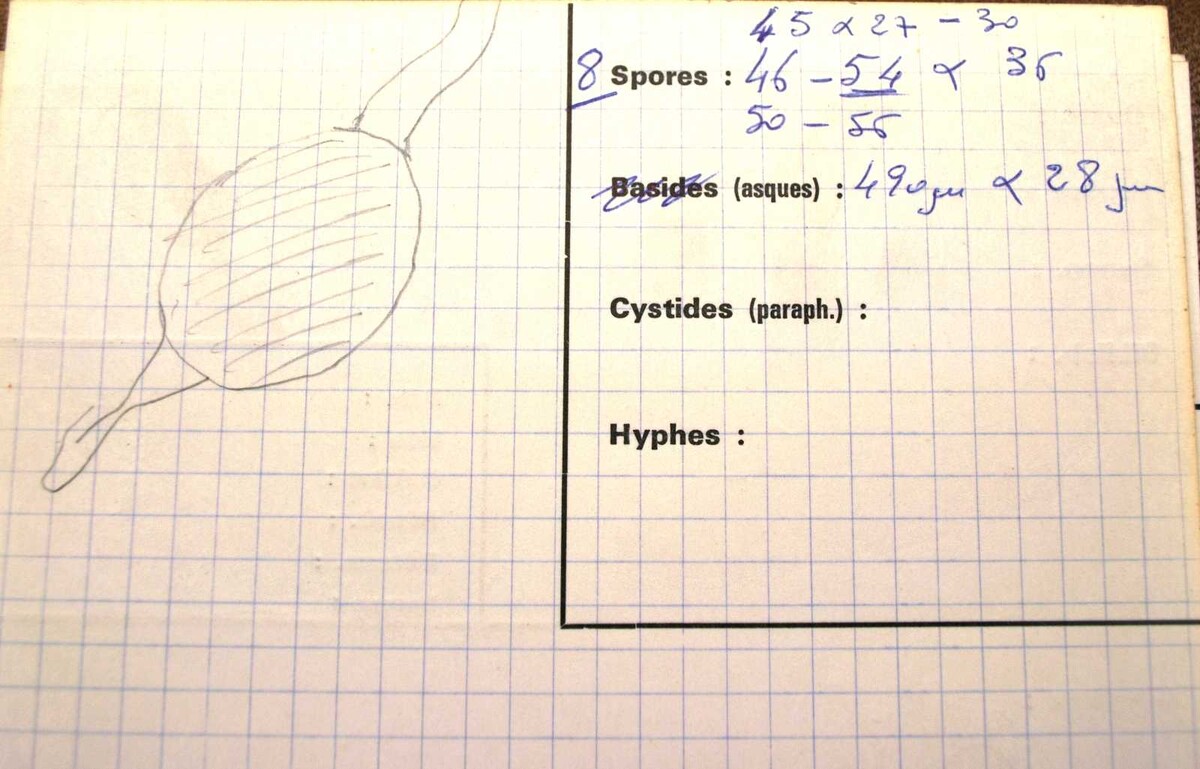 45 × 27 - 30
8 Spores : 46 - 54 × 36
50 - 56
Basides (asques) : 490 µm × 28 µm
Cystides (paraph.) :
Hyphes :